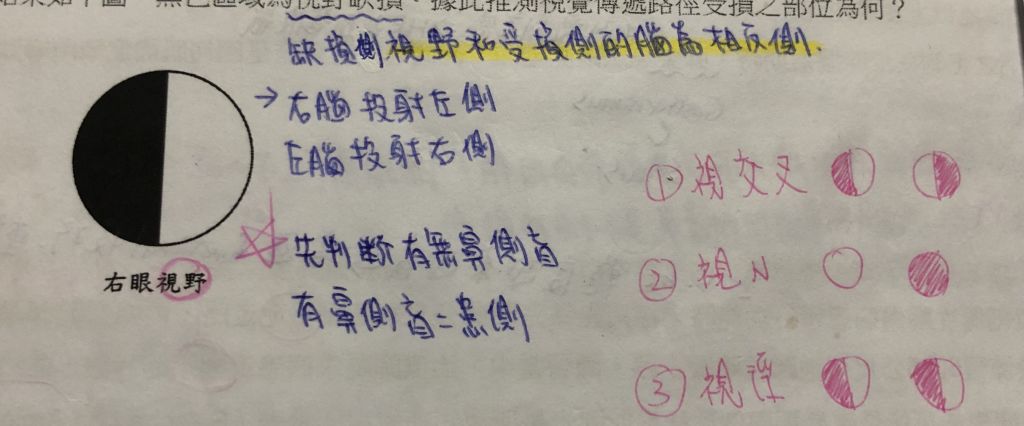 結果如下圖，黑色區域為視野缺損。據此推測視覺傳遞路徑受損之部位為何？
缺損側視野和受損側的腦為相反側.
→右腦投射左側
左腦投射右側
☆先判斷有無鼻側盲
有鼻側盲=患側
右眼視野
①視交叉
②視N
③視徑